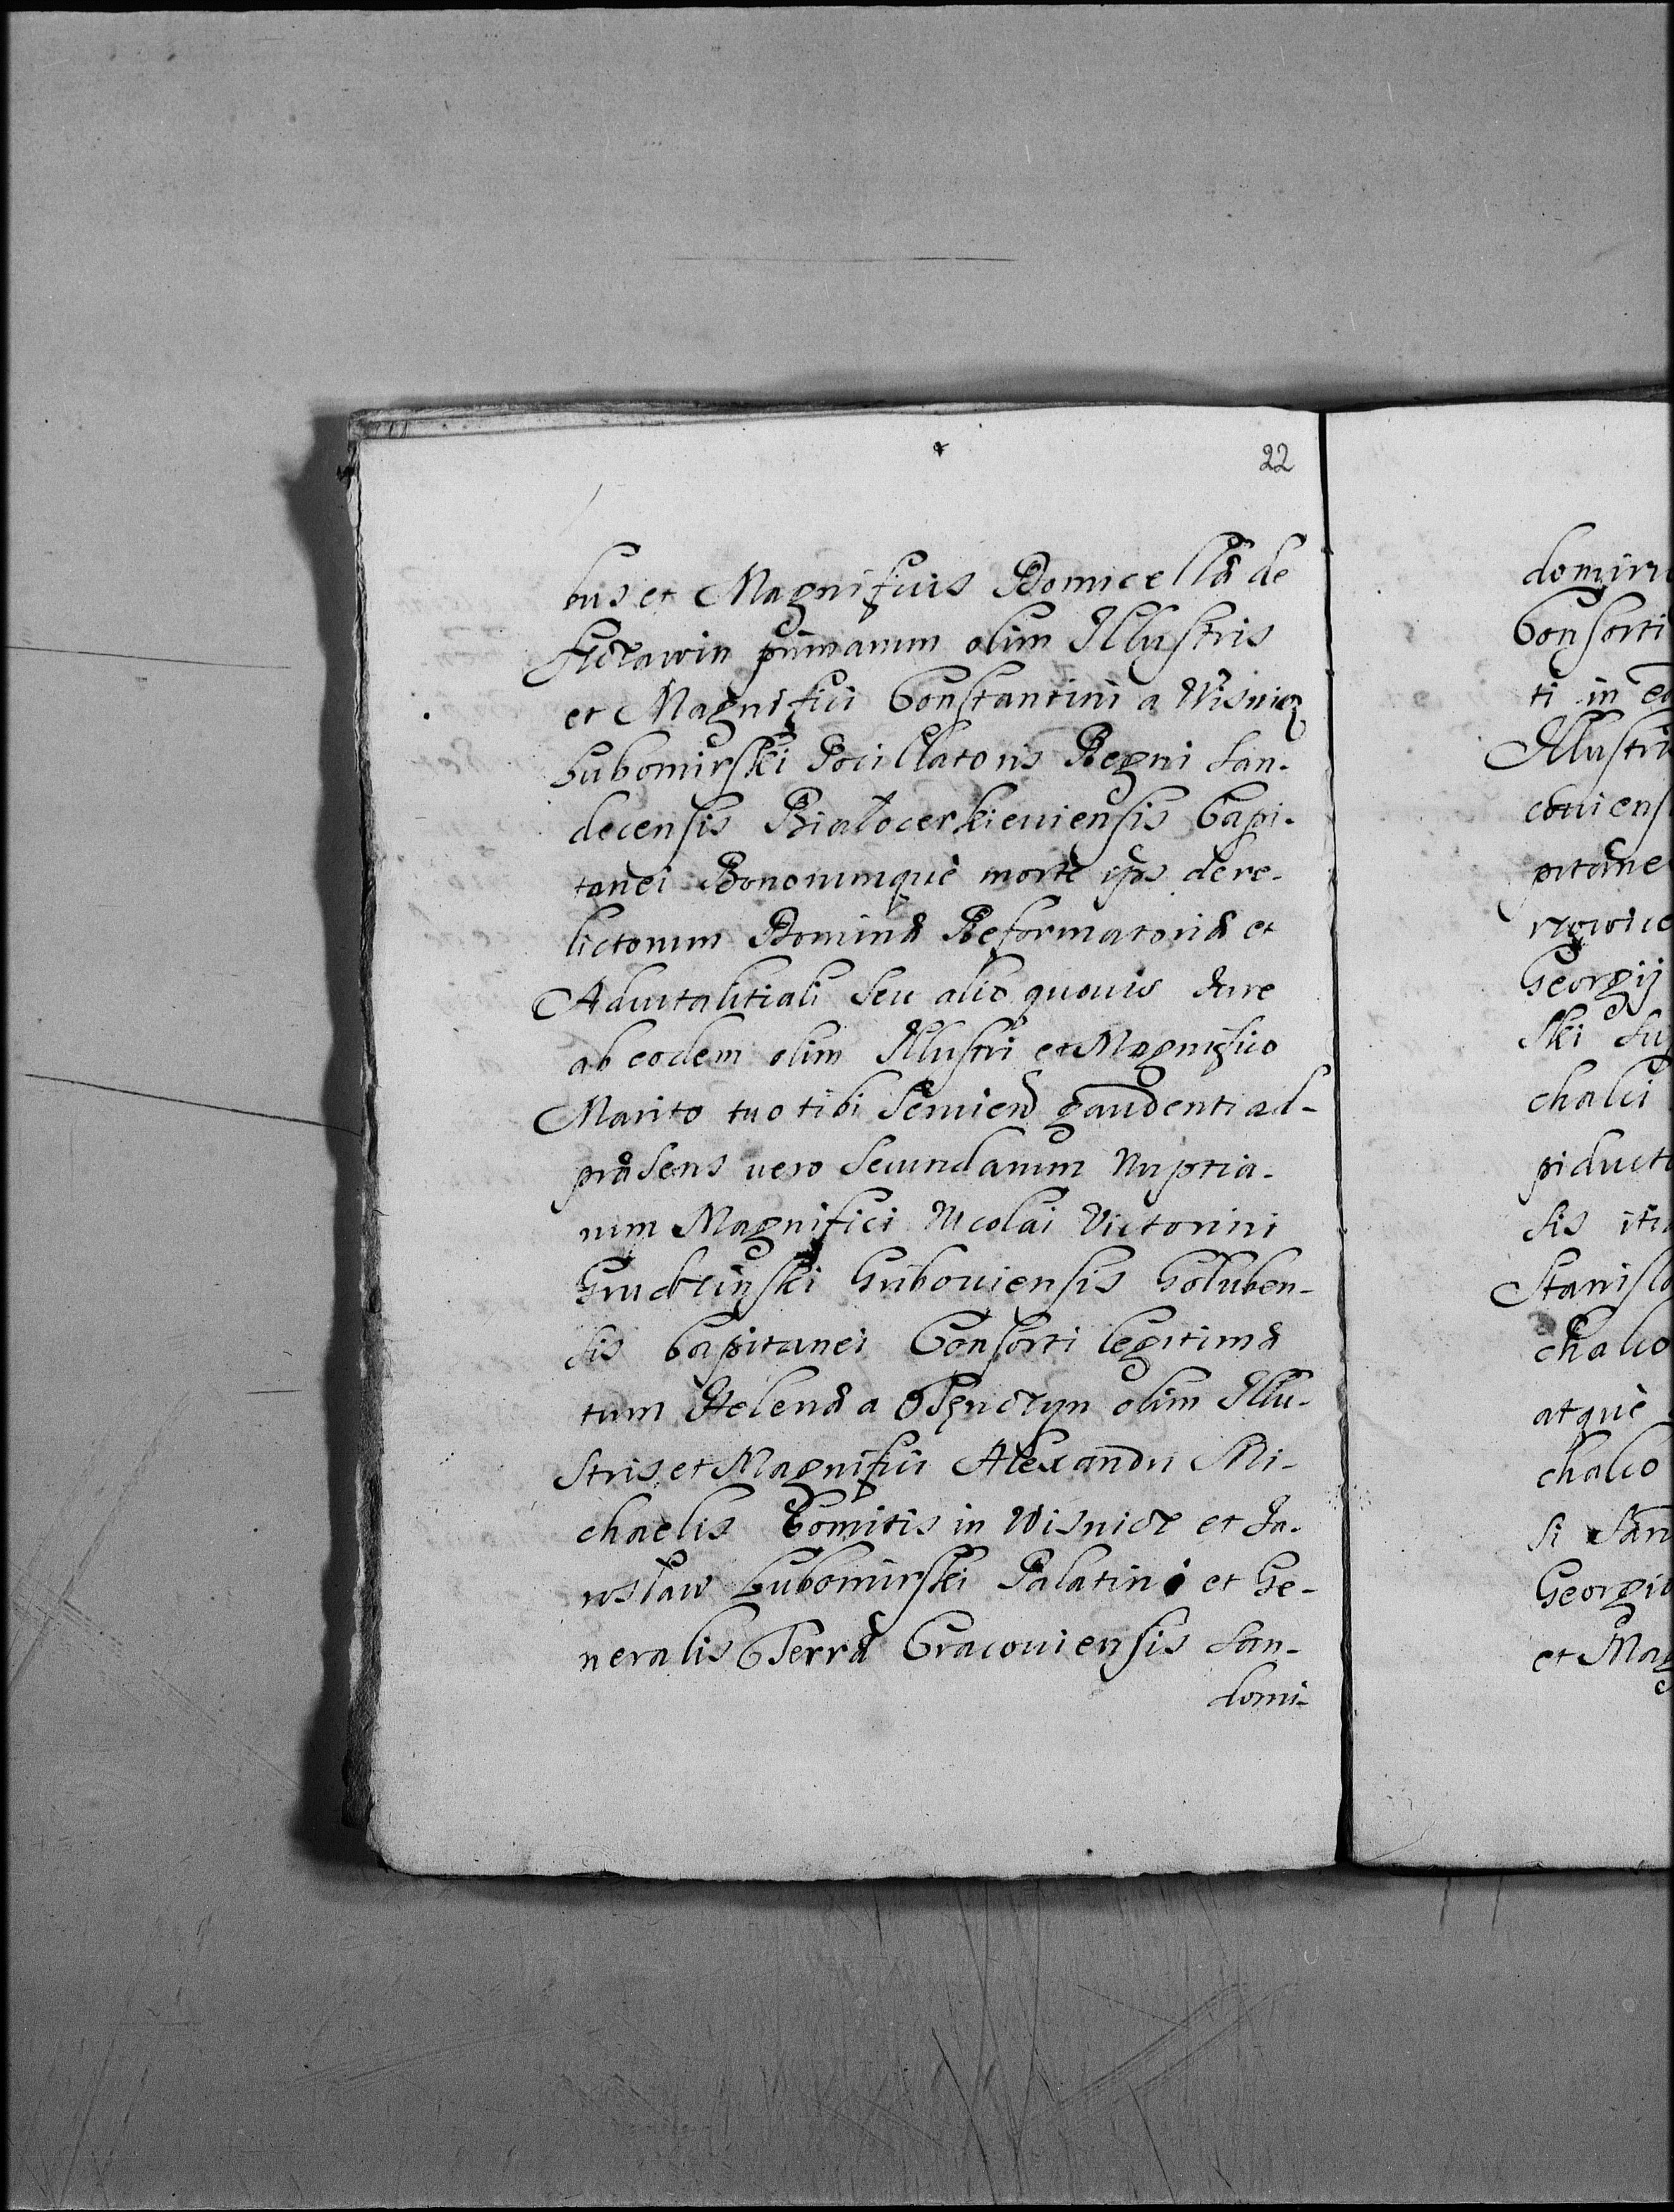 22
bus et Magnificis Domicellæ de
primarum olim Illustris
et Magnifici Constantini a Wisnicz
Lubomirski Pocillatoris Regni San-
decensis Białocerkieuiensis Capi-
tanei Bonorumquè morte eius dere-
lictorum Dominæ Reformatoriæ et
Aduitalitiali seu alio quouis Iure
ab eodem olim Illustri et Magnifico
Marito tuo tibi seruien gaudenti ad-
præsens uero secundarum Nuptia-
rum Magnifici Nicolai Victorini
Grudzinski Gribouiensis Goluben-
sis Capitanei Consorti legitimæ
tum Helenæ a olim Illu-
stris et Magnifici Alexandri Mi-
chaelis Comitis in Wisnicz et Ia-
rosław Lubomirski Palatini et Ge-
neralis Terræ Cracouiensis San-
domi-
domiri
Consorti
ti in eo
Illustri
couiens
pitane
Georgij
ski Su
chalci
piducto
sis
Stanisla
chalco
atquè
chalco
si San
Georgio
et Mag